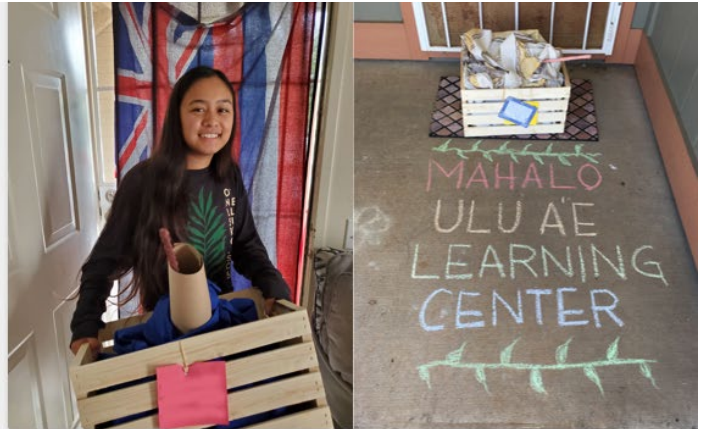 MAHALO
ULU A'E
LEARNING
CENTER